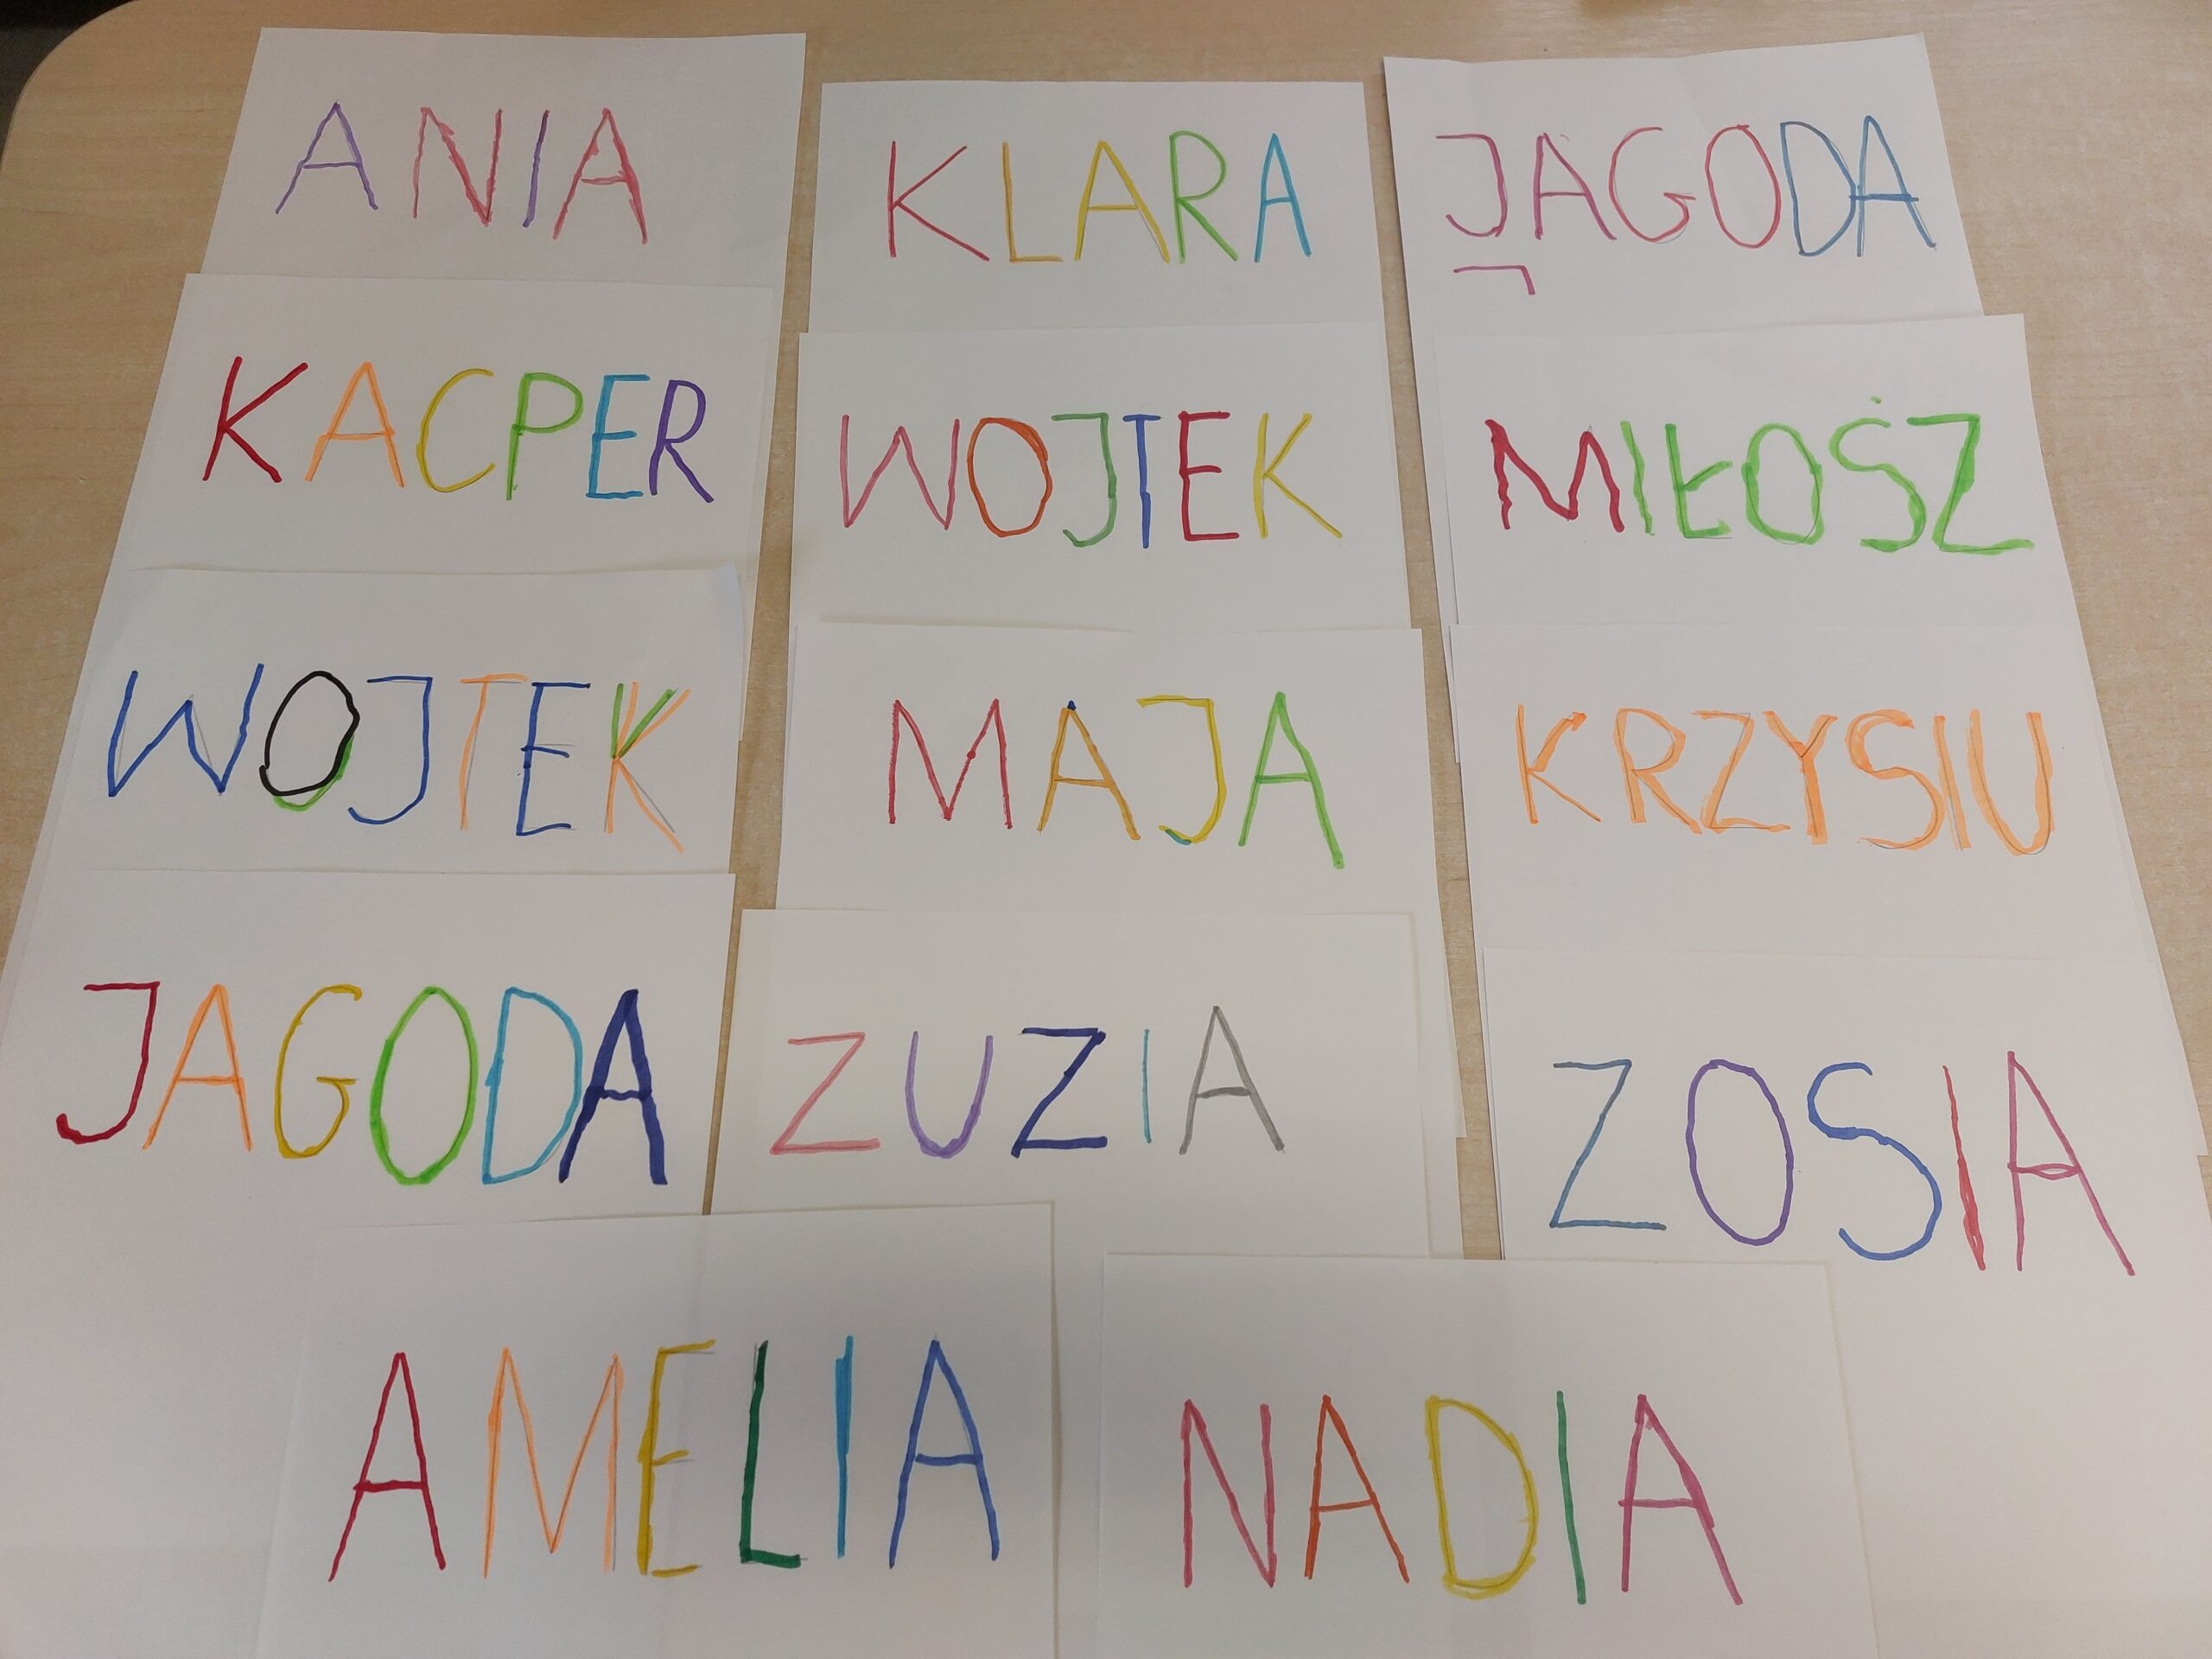 ANIA
KLARA
JAGODA
KACPER
WOJTEK
MIŁOSZ
WOJTEK
MAJA
KRZYSIU
JAGODA
ZUZIA
ZOSIA
AMELIA
NADIA